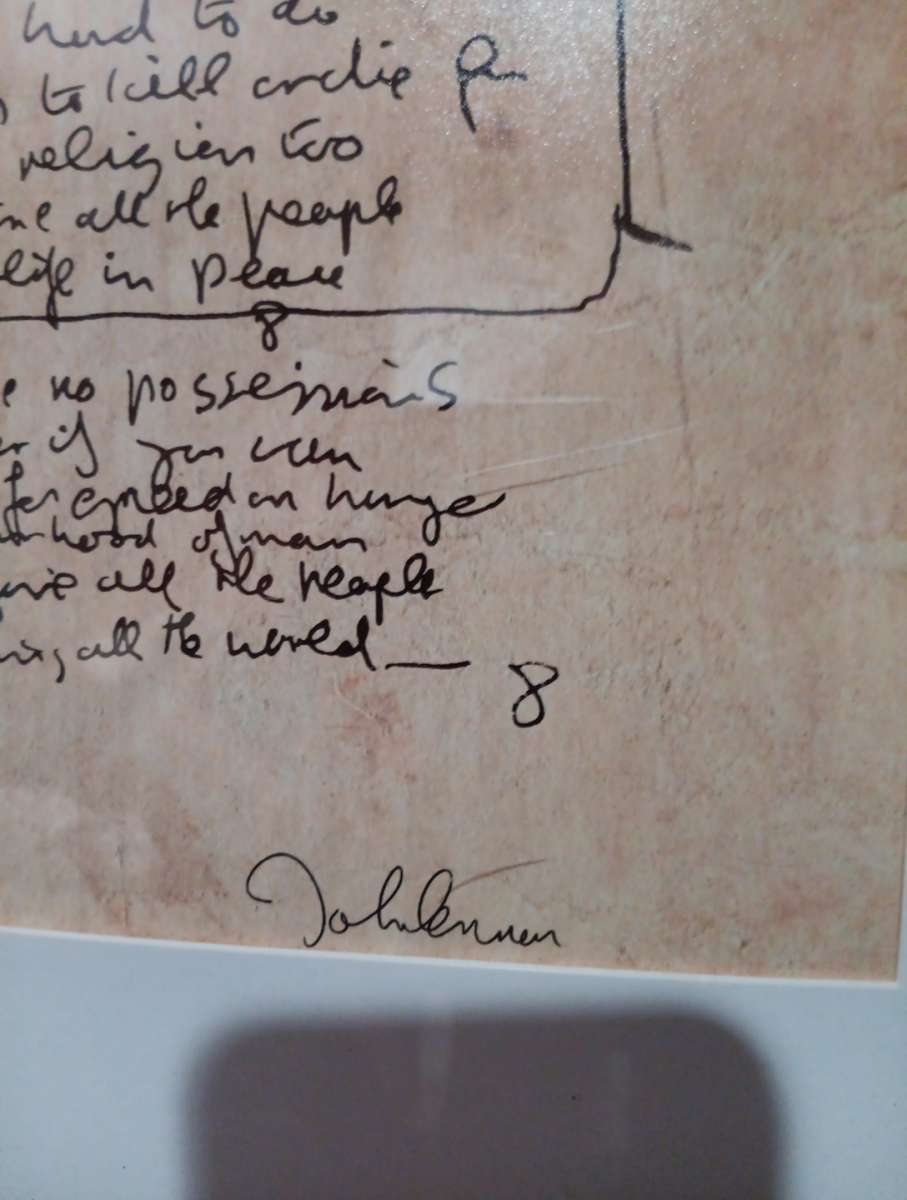 hard to do
to kill or die for
religion too
all the people
life in peace
8
no possessions
if you can
for greed or hunger
hood of man
all the people
all the world —
8
John Lennon